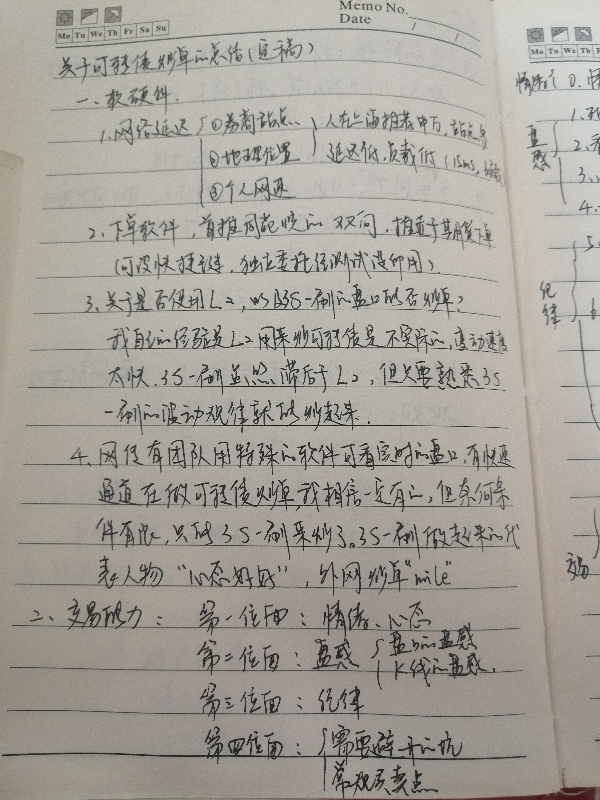 Memo No.
Date / /
Mo Tu We Th Fr Sa Su
关于可转债炒单的总结(定稿)
一、软硬件.
1.网络延迟 ①券商站点、
②地理位置
③个人网速
人在上海推荐申万,站点多
延迟低,负载低(15ms,
2、下单软件,首推同花顺的
(可设快捷键,独立委托经测试没卵用)
3、关于是否使用L2,以及3S一刷的盘口能否炒单?
我自己的经验是L2用来炒可转债是不实际的,变动速度
太快,3S一刷虽然滞后于L2,但只要熟悉3S
一刷的波动规律就能炒起来.
4、网传有团队用特殊的软件可看实时的盘口,有快速
通道在做可转债炒单,我相信一定有的,但奈何条
件有限,只能3S一刷来炒了。3S一刷做起来的代
表人物“心态好好”,外网炒单“mile”
二、交易能力:
第一位面:情绪、心态
第二位面:盘感 盘口的盘感
K线的盘感.
第三位面:纪律
第四位面:需要避开的坑
常规买卖点
Mo Tu We Th F
盘感
纪律